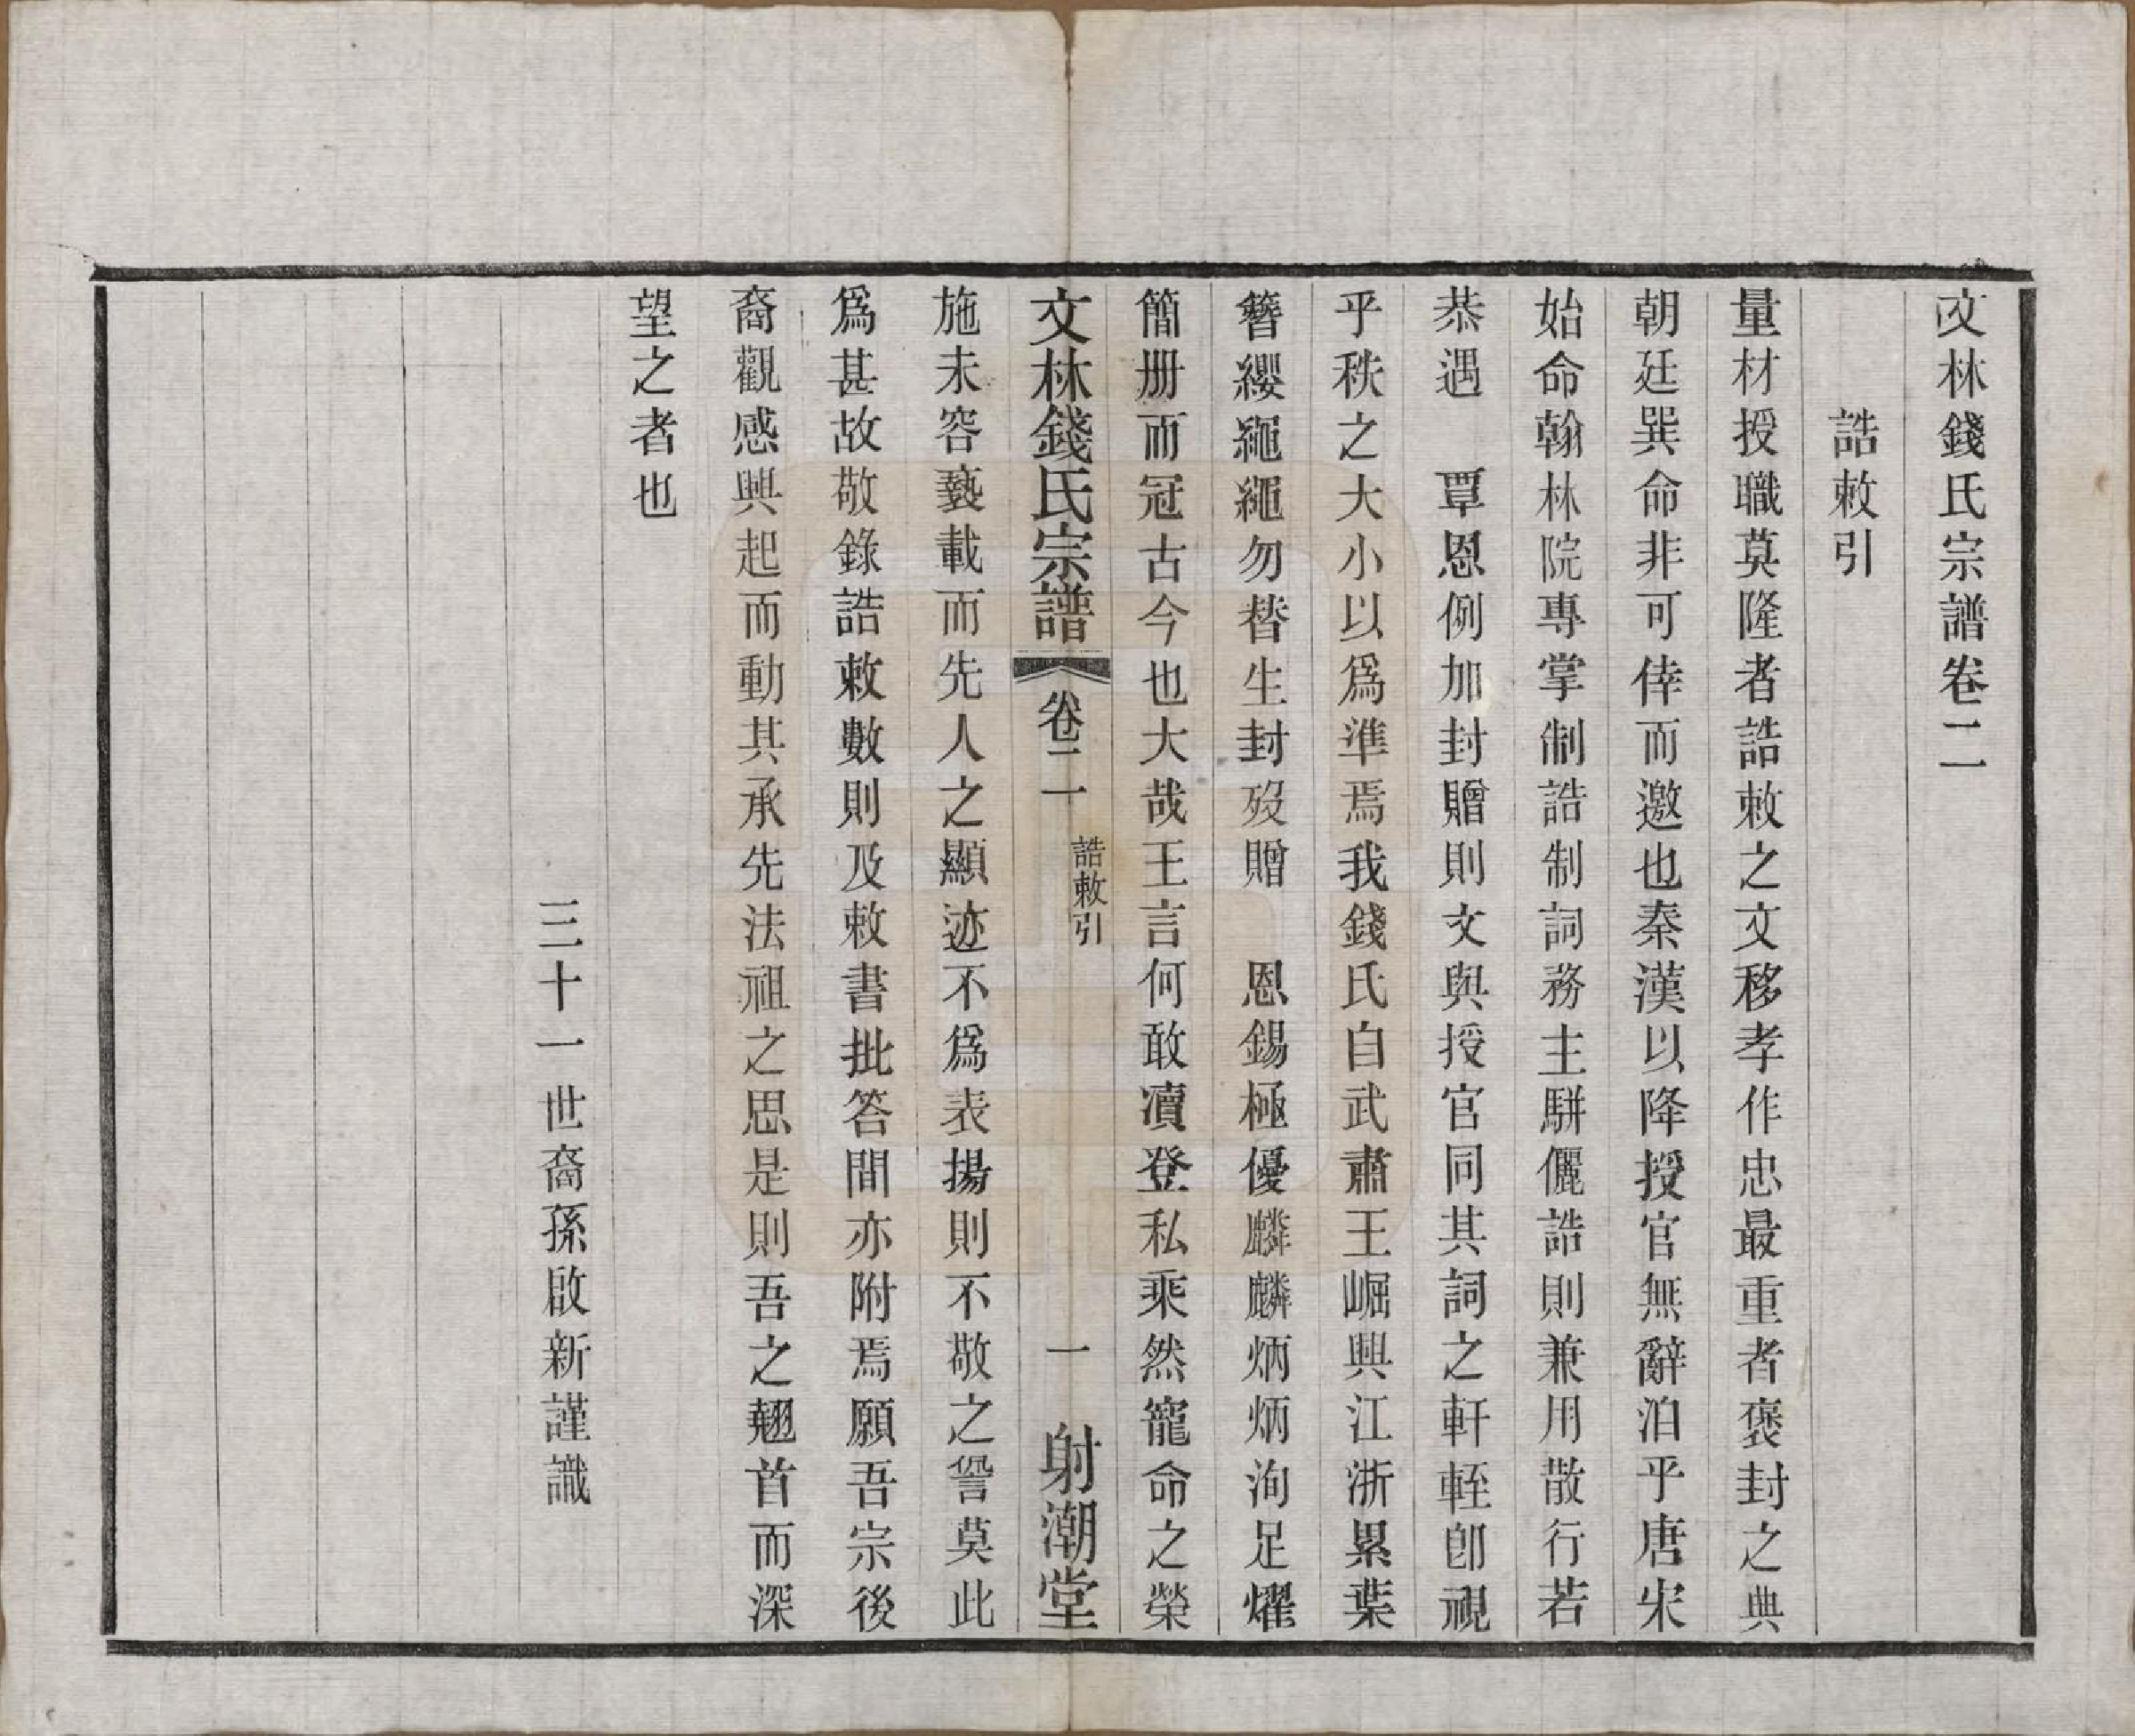 文林錢氏宗譜卷二
誥敕引
量材授職莫隆者誥敕之文移孝作忠最重者褒封之典
朝廷巽命非可倖而邀也秦漢以降授官無辭洎乎唐宋
始命翰林院專掌制誥制詞務主駢儷誥則兼用散行若
恭遇　覃恩例加封贈則文與授官同其詞之軒輊卽視
乎秩之大小以爲準焉我錢氏自武肅王崛興江浙累葉
簪纓繩繩勿替生封歿贈　恩錫極優麟麟炳炳洵足燿
簡册而冠古今也大哉王言何敢瀆登私乘然寵命之榮
文林錢氏宗譜　卷二　一　誥敕引　一　射潮堂
施未容褻載而先人之顯迹不爲表揚則不敬之訾莫此
爲甚故敬錄誥敕數則及敕書批答間亦附焉願吾宗後
裔觀感興起而動其承先法祖之思是則吾之翹首而深
望之者也
三十一世裔孫啟新謹識